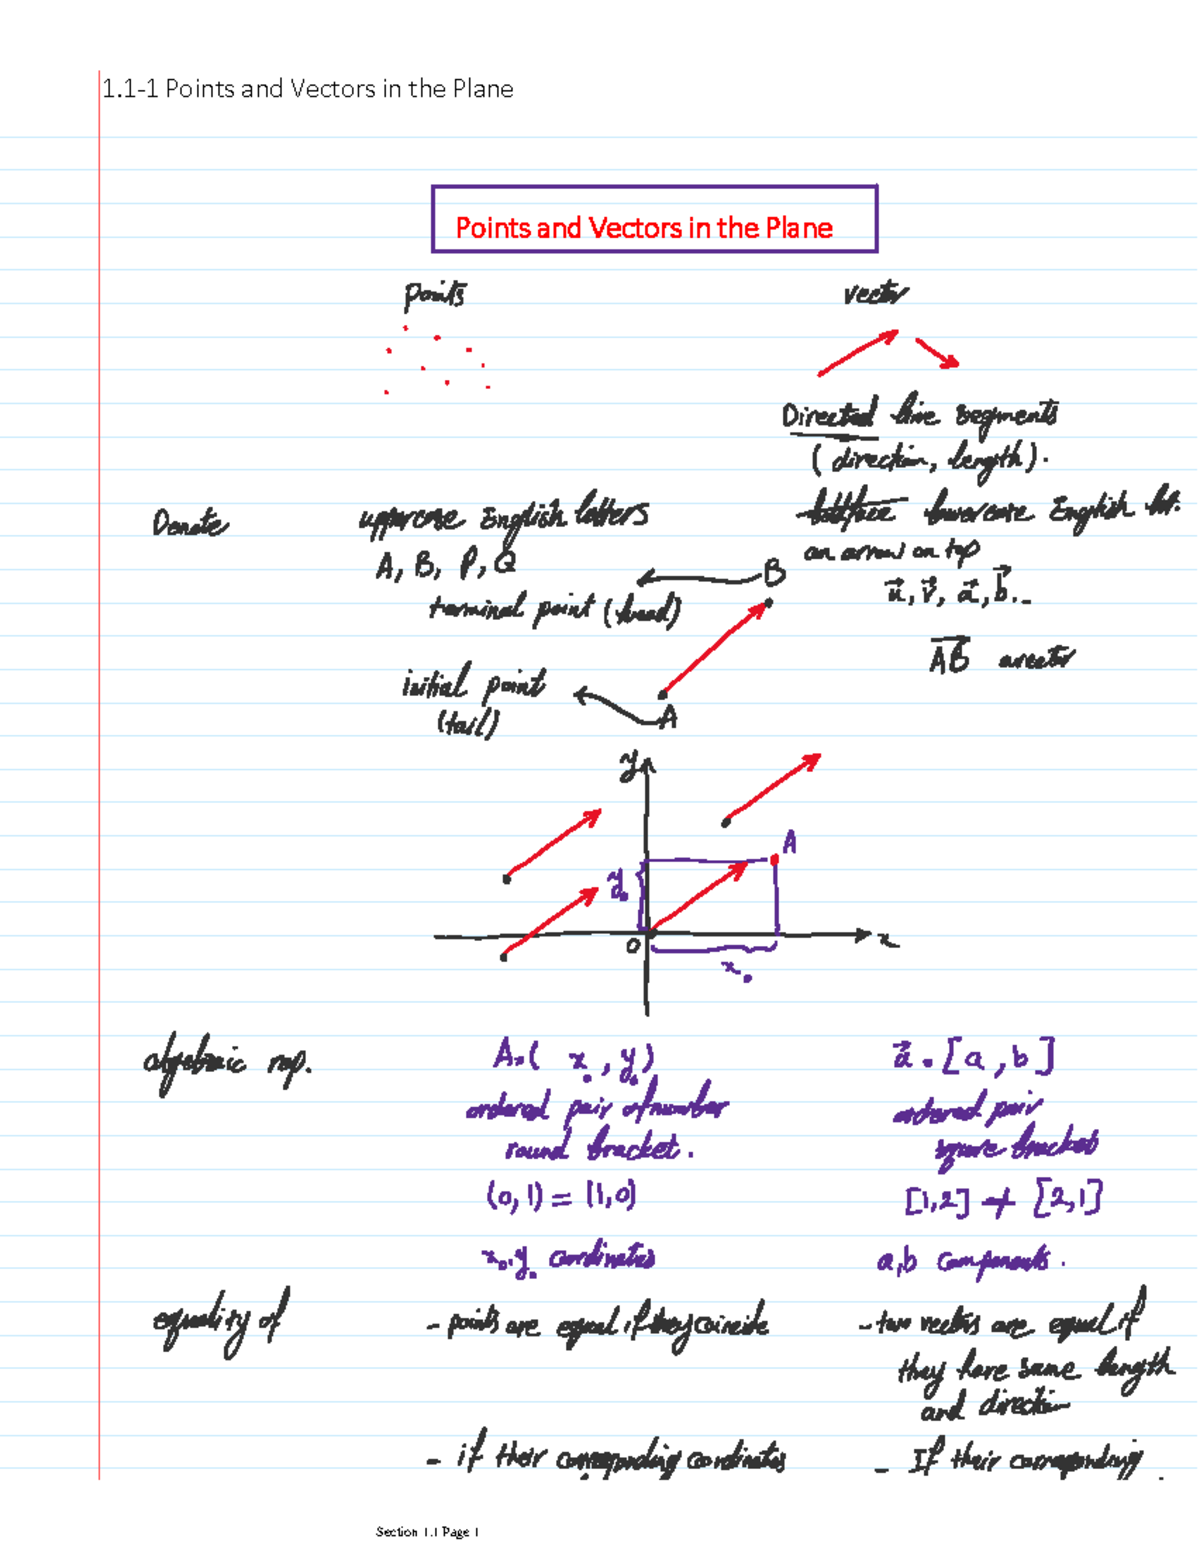 1.1-1 Points and Vectors in the Plane
Points and Vectors in the Plane
points
vector
Directed line segments
(direction, length).
Denote
uppercase English letters
boldface lowercase English let.
A, B, P, Q
an arrow on top
B
u⃗, v⃗, a⃗, b⃗..
terminal point (head)
AB⃗ a vector
initial point
(tail)
A
y
A
y₀
O
x
x₀
algebraic rep.
A=( x₀, y₀)
a⃗ = [a, b]
ordered pair of number
ordered pair
round bracket.
square bracket
(0,1) = (1,0)
[1,2] ≠ [2,1]
x₀, y₀ coordinates
a,b components.
equality of
- points are equal if they coincide
- two vectors are equal if
they have same length
and direction
- if their corresponding coordinates
- If their corresponding
Section 1.1 Page 1